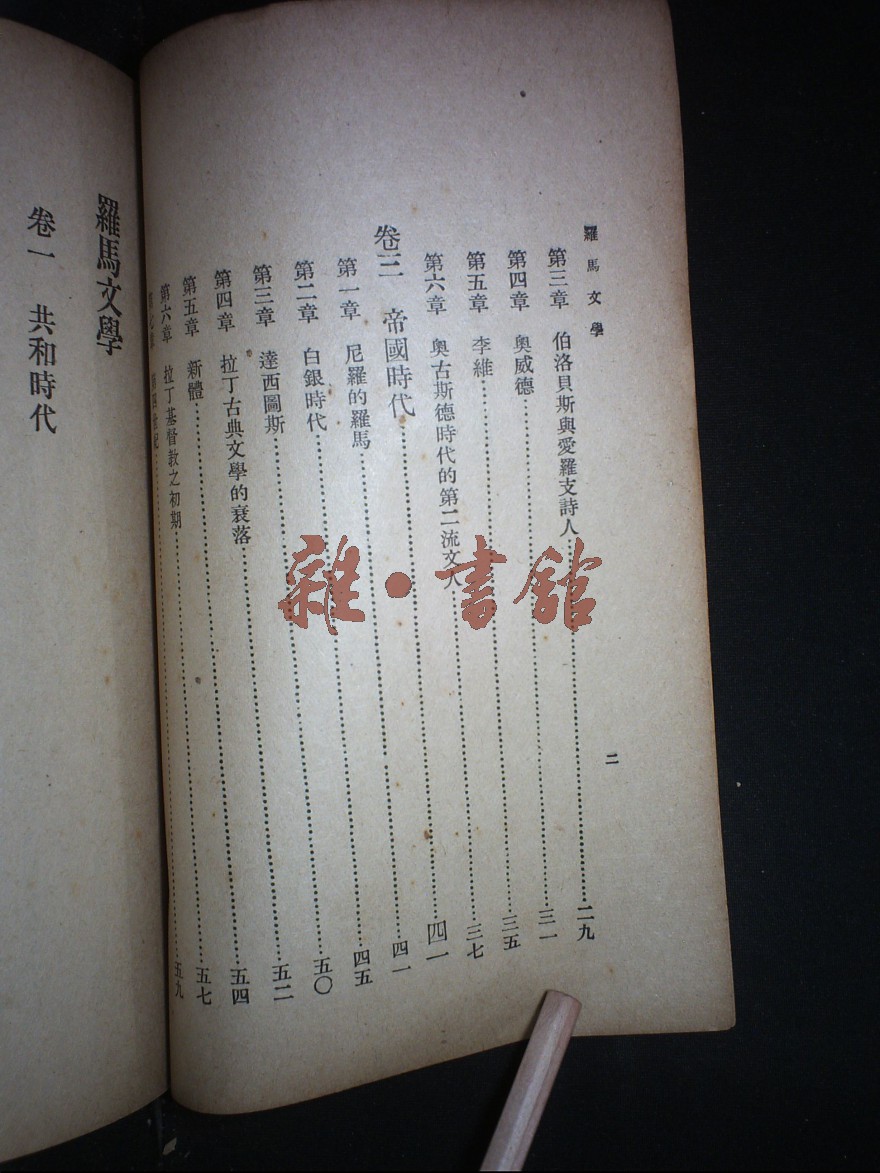 羅馬文學
二
第三章 伯洛貝斯與愛羅支詩人……二九
第四章 奧威德……三一
第五章 李維……三五
第六章 奧古斯德時代的第二流文人……三七
卷三 帝國時代……四一
第一章 尼羅的羅馬……四一
第二章 白銀時代……四五
第三章 達西圖斯……五〇
第四章 拉丁古典文學的衰落……五二
第五章 新體……五四
第六章 拉丁基督教之初期……五七
第四世紀……五九
羅馬文學
卷一 共和時代
雜·書館